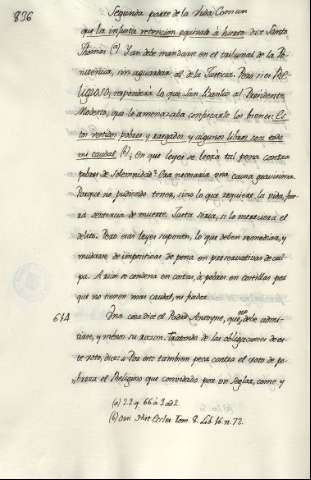 896
Segunda parte de la Vida Comun
que la injusta retencion equivale à hurto: dice Santo
Thomas (a). Y an debe mandarse en el tribunal de la Pe-
nitencia, sin aguardar al de la Justicia. Pero si es Re-
ligioso, responderà lo que San Basilio al Presidente
Modesto, que le amenazaba confiscarle los bienes: Es-
tos vestidos pobres y rasgados, y algunos libros son todo
mi caudal (b). En que leyes se leerà tal pena contra
pobres de solemnidad? Era necesaria una causa gravisima.
Porque no pudiendo tener, sino lo que requiere la vida, fue-
ra sentencia de muerte. Justa seria, si lo mereciera el
delito. Pero esas leyes suponen, lo que deben remediar, y
mudaran de impositivas de pena en preservativas de cul-
pa. A nadie se condena en costas, à pobres en costillas por
que no tienen mas caudal, ni poder.
614 Una cosa dice el Padre Enrique, que no se debe admi-
tirse, y menos su razon. Tratando de las obligaciones de es-
te voto, dice: Por esto tambien peca contra el voto de po-
breza el Religioso que convidado por un seglar, come y
(a) 2.2 q. 66 à 3 ad 2.
(b) Orsi Hist Ecles Tom 8. Lib 16 n. 72.